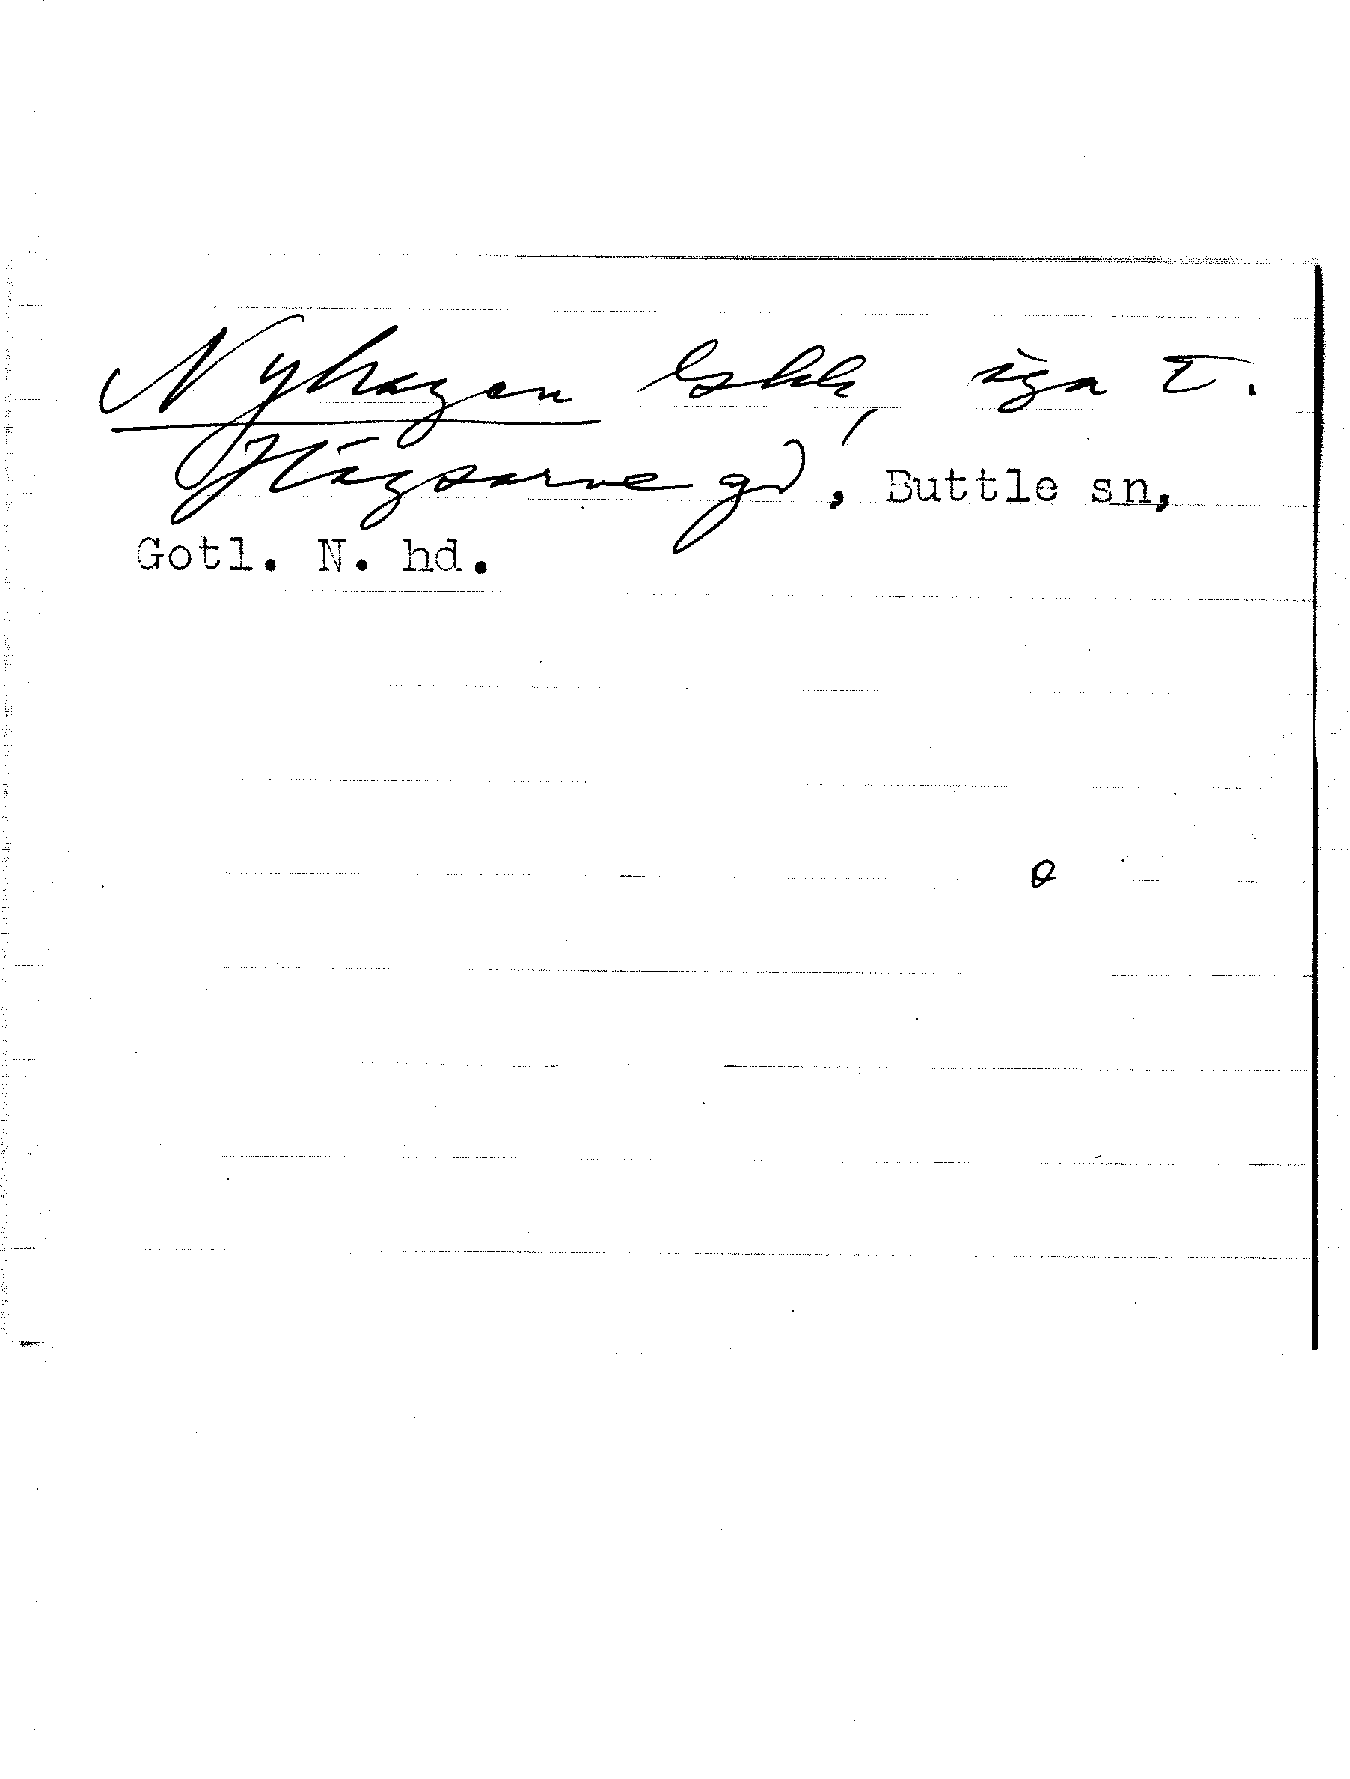 Nyhagen äga t.
Hägsarve gd, Buttle sn,
Gotl. N. hd.